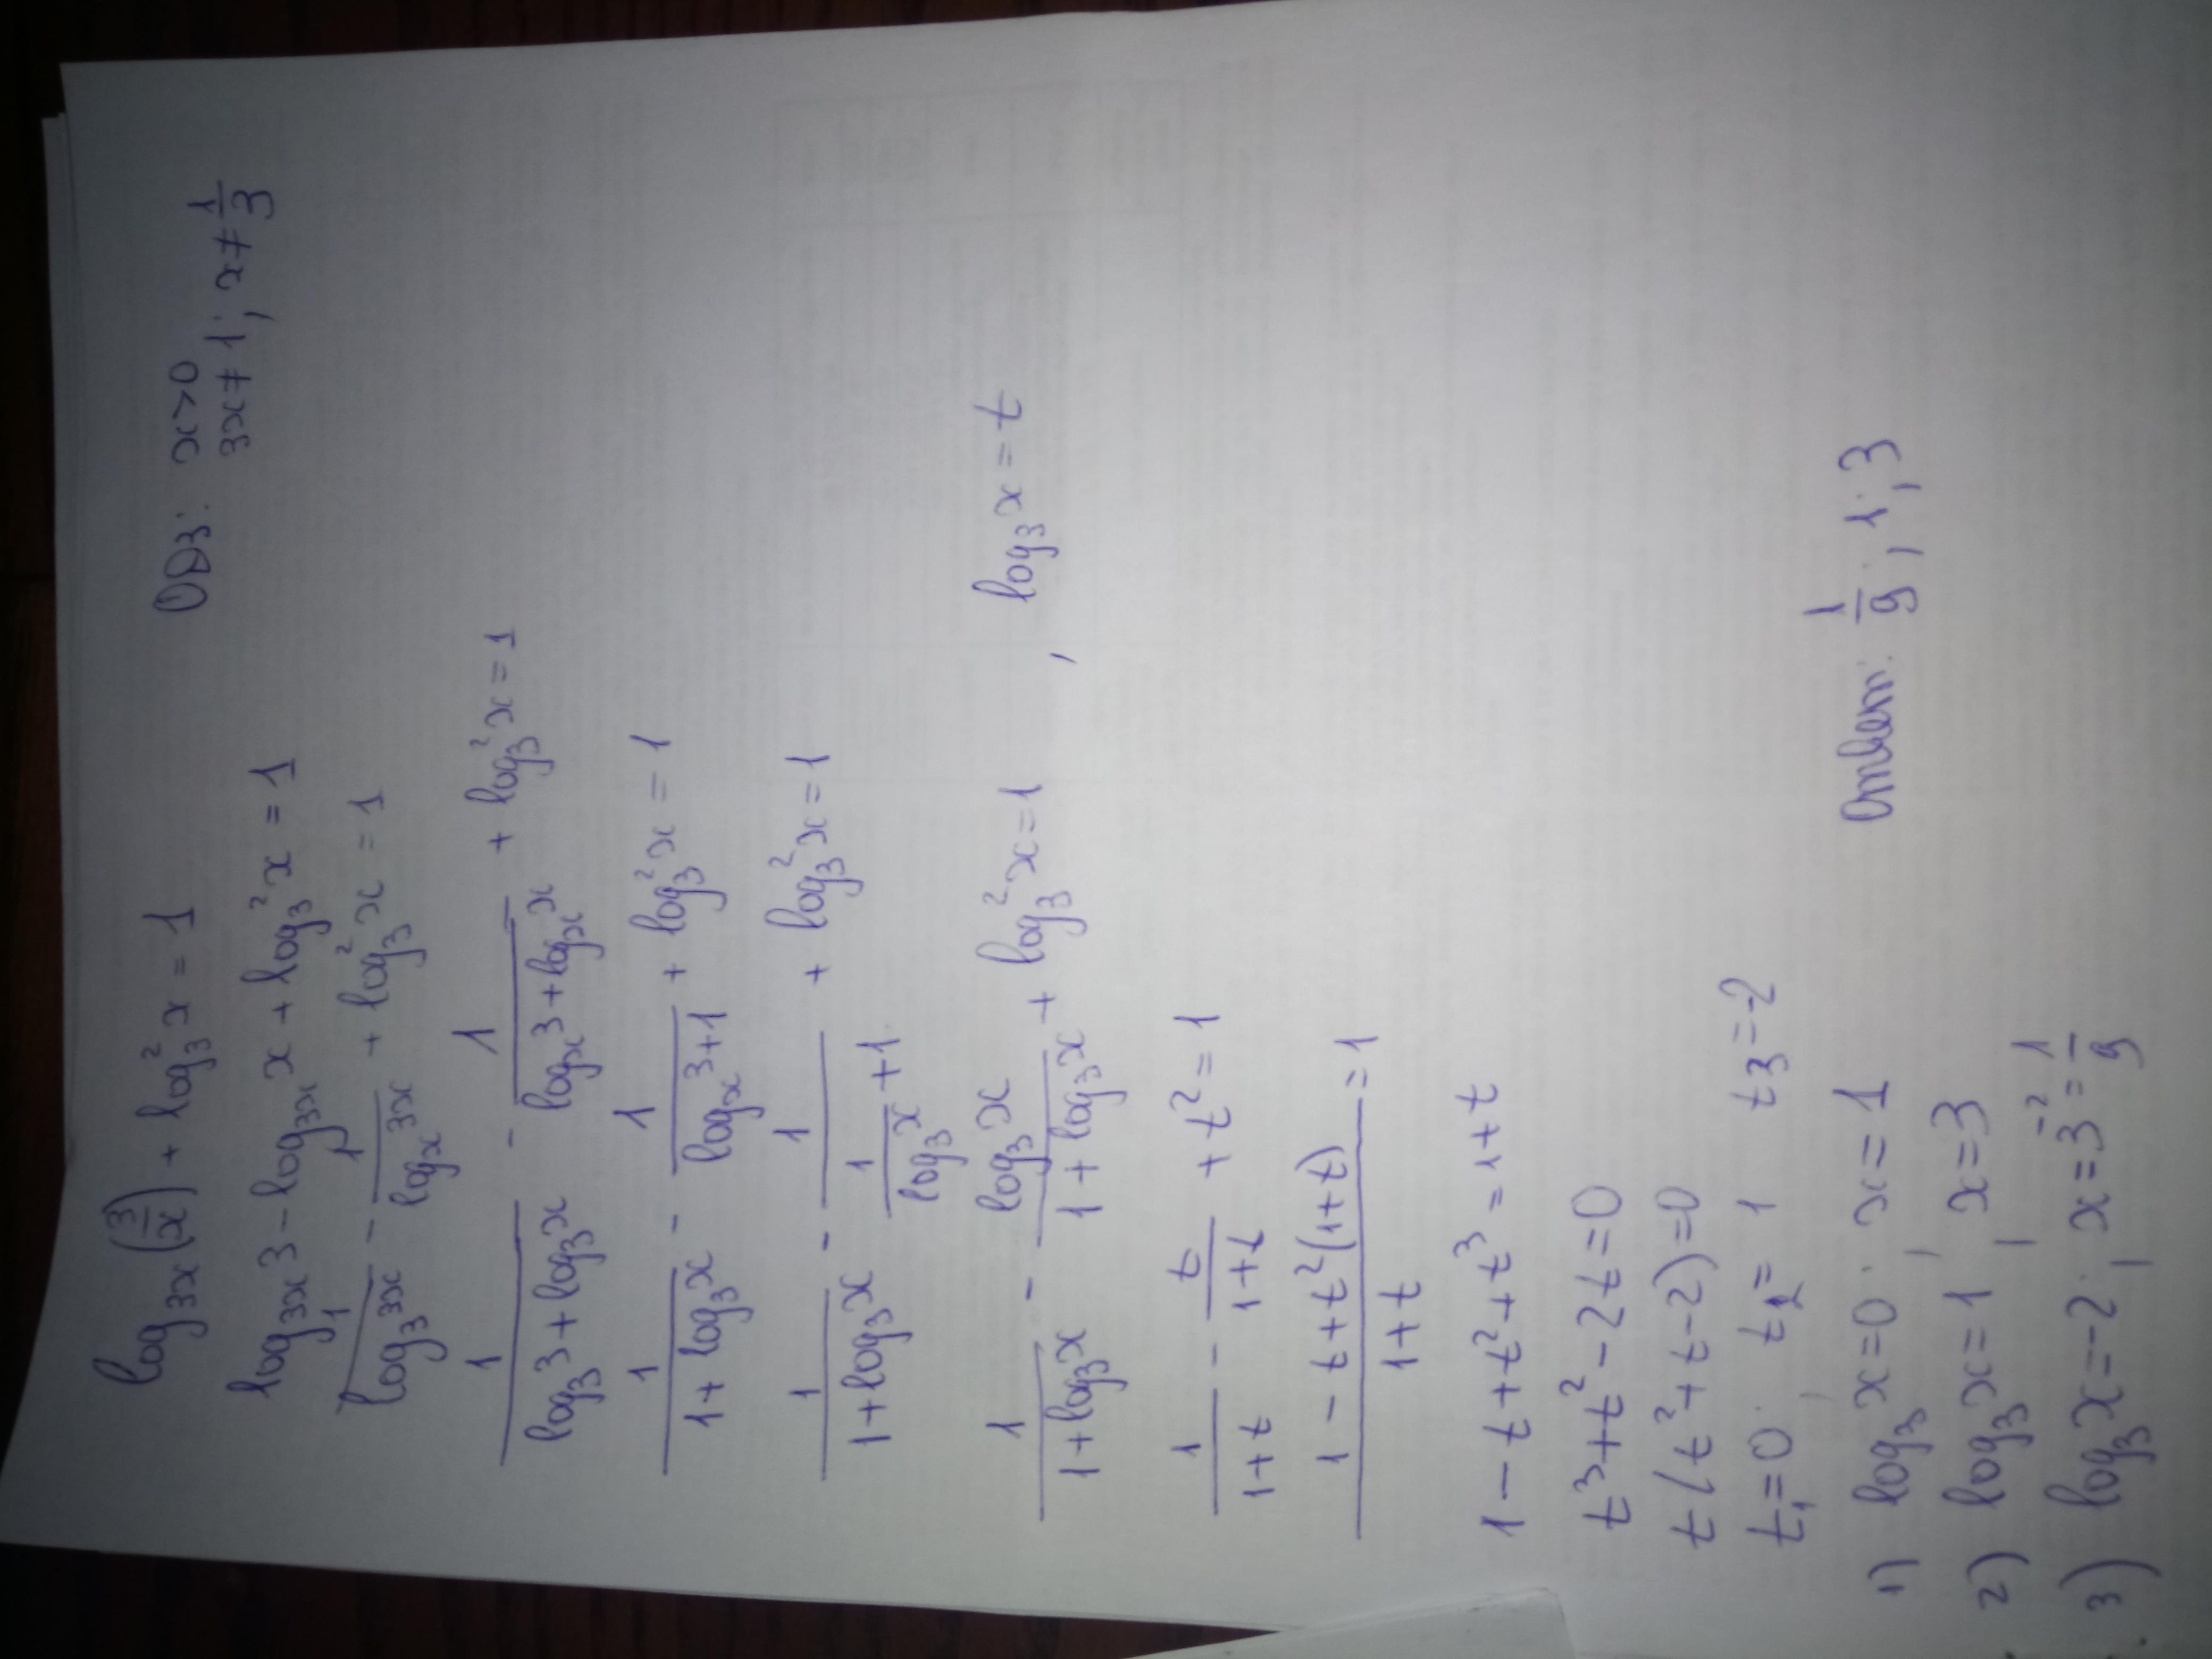 log_{3x}(3/x) + log_3^2 x = 1 ОДЗ: x>0
3x≠1; x≠1/3
log_{3x} 3 - log_{3x} x + log_3^2 x = 1
1/(log_3 3x) - 1/(log_x 3x) + log_3^2 x = 1
1/(log_3 3 + log_3 x) - 1/(log_x 3 + log_x x) + log_3^2 x = 1
1/(1 + log_3 x) - 1/(log_x 3 + 1) + log_3^2 x = 1
1/(1 + log_3 x) - 1/(1/(log_3 x) + 1) + log_3^2 x = 1
1/(1 + log_3 x) - log_3 x/(1 + log_3 x) + log_3^2 x = 1 , log_3 x = t
1/(1+t) - t/(1+t) + t^2 = 1
(1 - t + t^2(1+t))/(1+t) = 1
1 - t + t^2 + t^3 = 1+t
t^3 + t^2 - 2t = 0
t(t^2 + t - 2) = 0
t_1 = 0; t_2 = 1 t_3 = -2
1) log_3 x = 0; x = 1 Ответ: 1/9; 1; 3
2) log_3 x = 1; x = 3
3) log_3 x = -2; x = 3^{-2} = 1/9